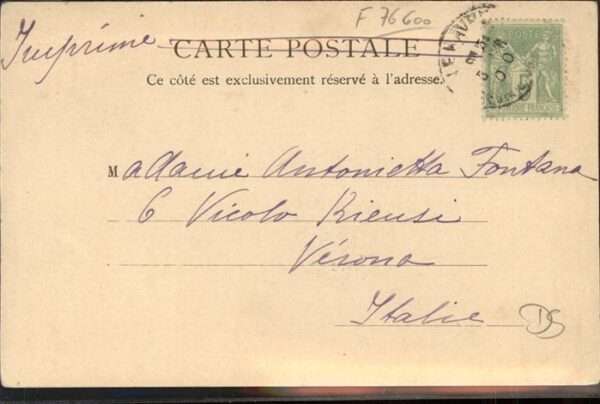 F 76600
Imprimé
CARTE POSTALE
Ce côté est exclusivement réservé à l'adresse.
LE HAVRE
Madame Antonietta Fontana
6 Vicolo Rieusi
Vérona
Italie
DS